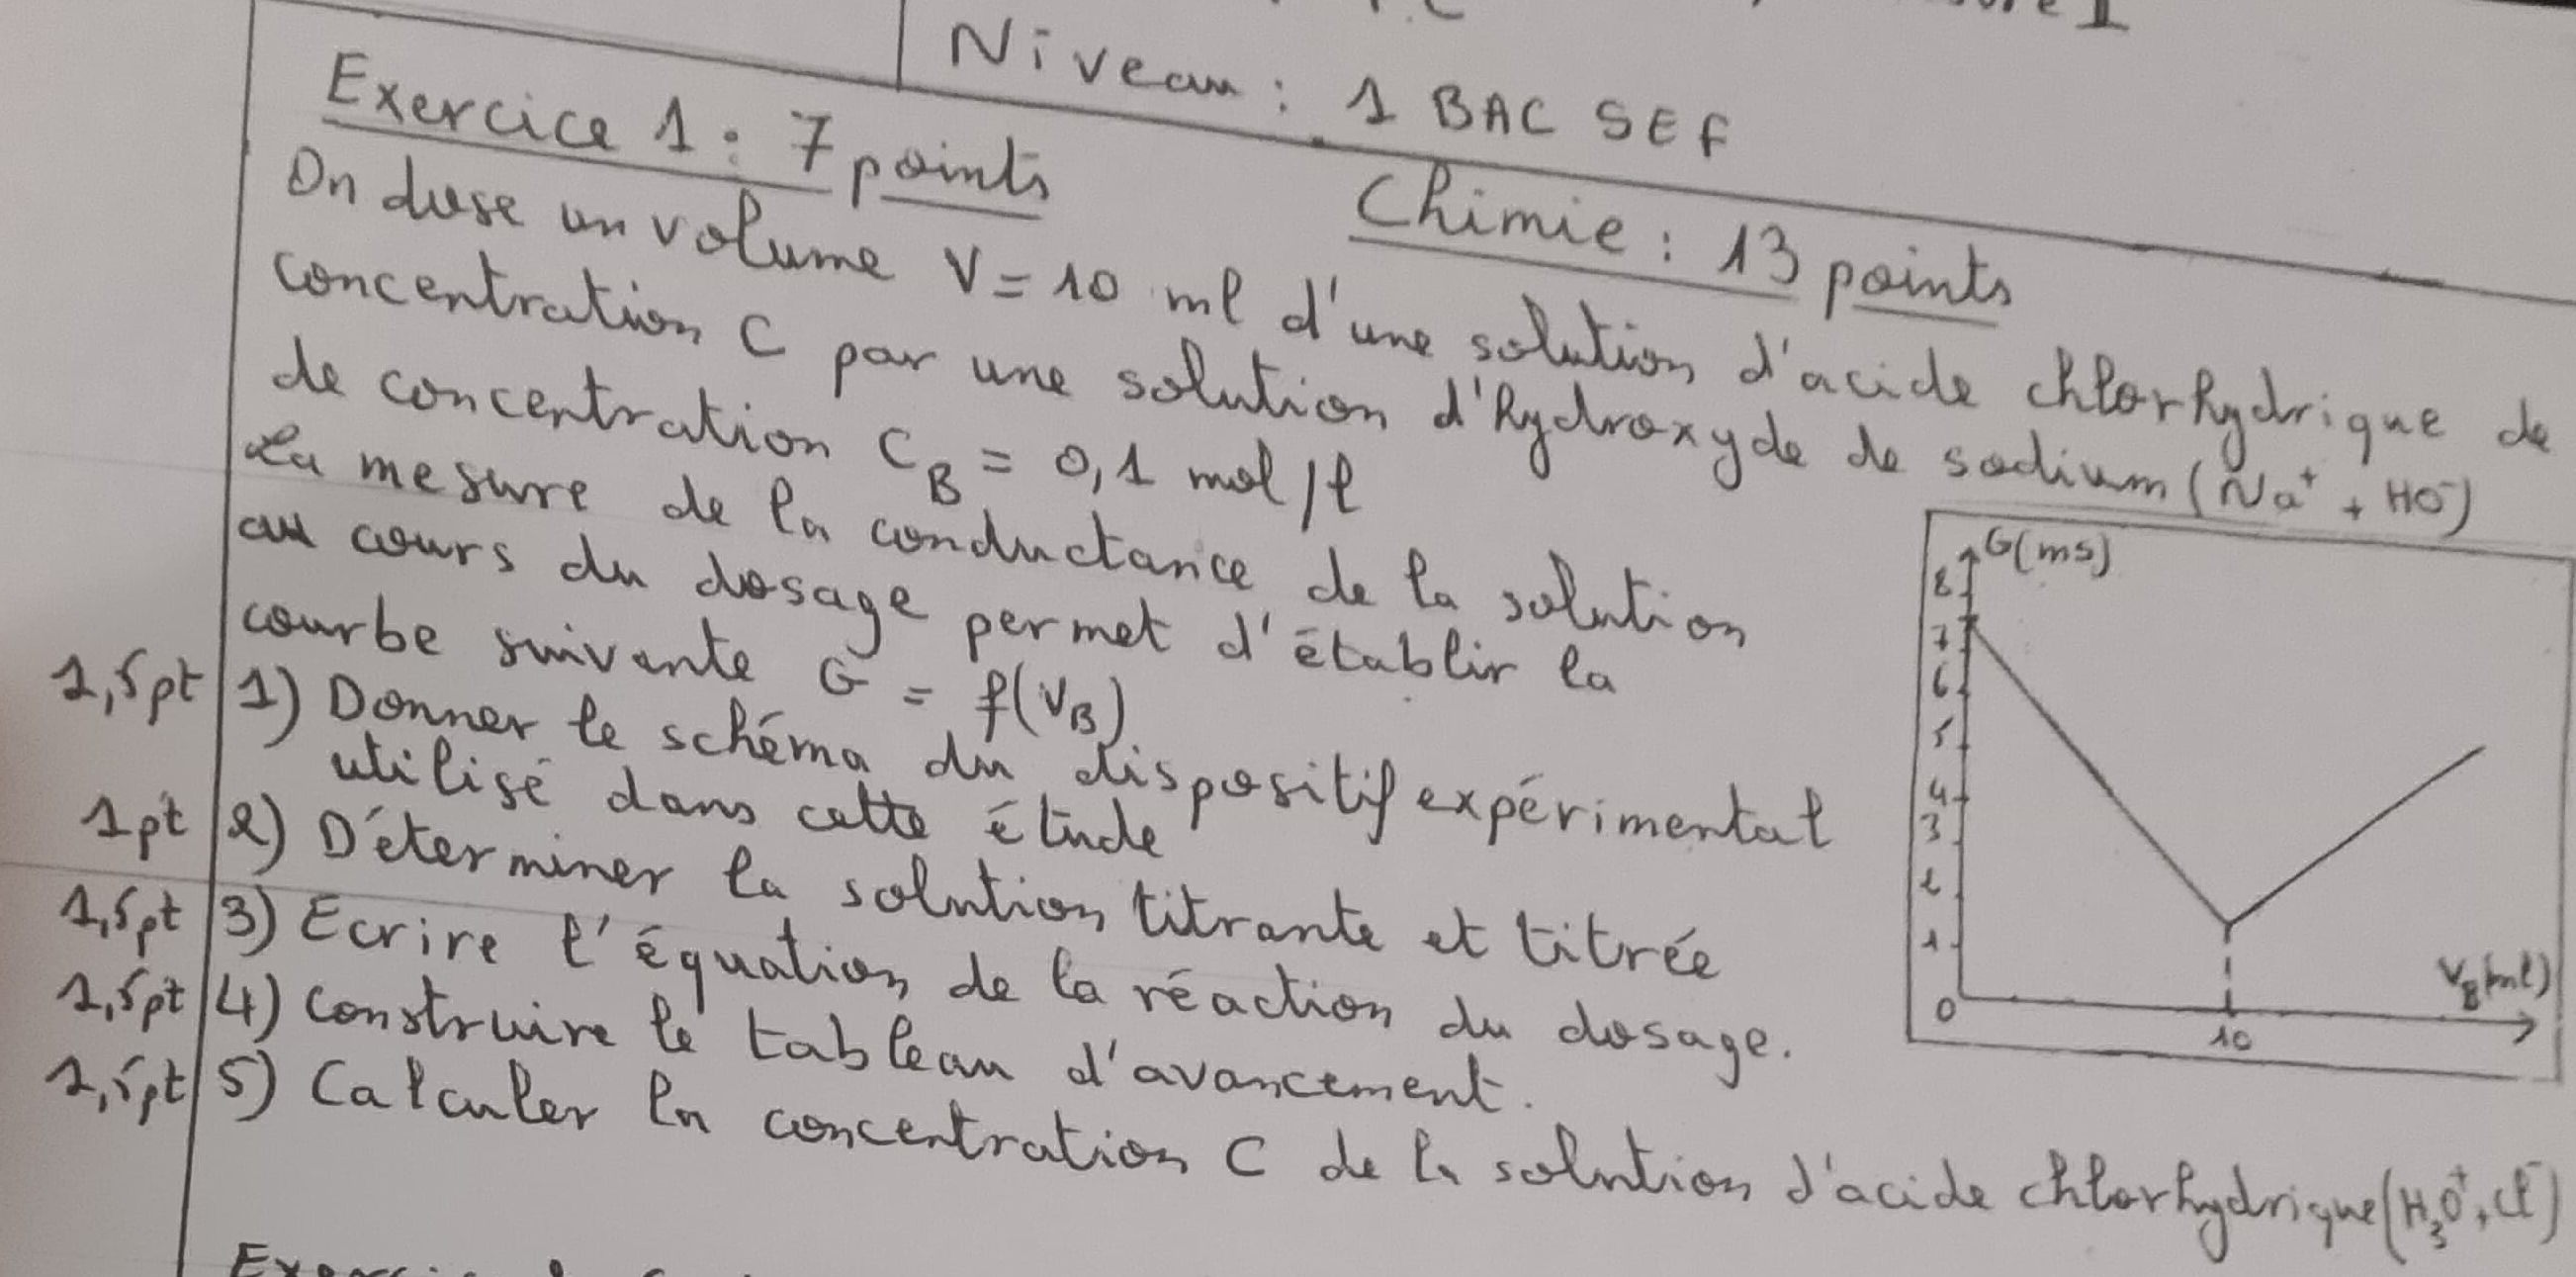 Niveau : 1 BAC SEF
Exercice 1 : 7 points
Chimie : 13 points
On dose un volume V = 10 ml d'une solution d'acide chlorhydrique de
concentration C par une solution d'hydroxyde de sodium (Na⁺ + HO⁻)
de concentration C_B = 0,1 mol/l
La mesure de la conductance de la solution
au cours du dosage permet d'établir la
courbe suivante G = f(V_B)
1,5pt 1) Donner le schéma du dispositif expérimental
utilisé dans cette étude
1pt 2) Déterminer la solution titrante et titrée
1,5pt 3) Ecrire l'équation de la réaction du dosage.
1,5pt 4) Construire le tableau d'avancement.
1,5pt 5) Calculer la concentration C de la solution d'acide chlorhydrique (H₃O⁺, Cl⁻)
G(ms)
8
7
6
5
4
3
2
1
0
10
V_B(ml)